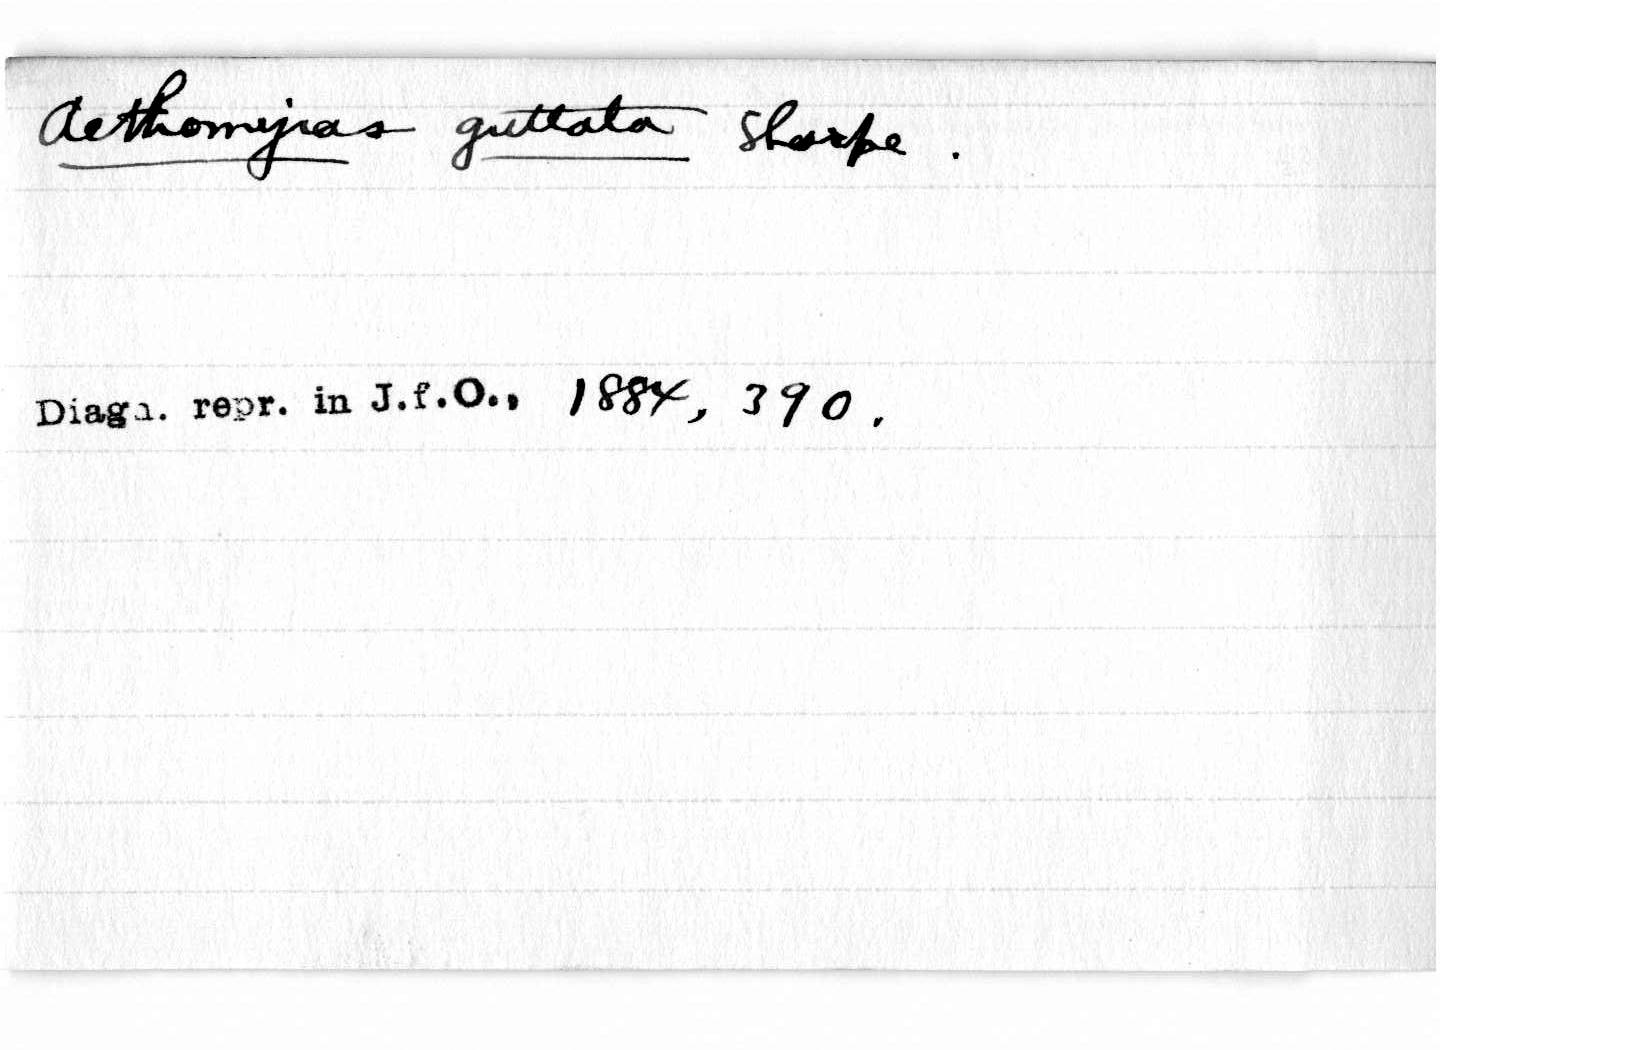 Aethomyias guttata Sharpe.
Diagn. repr. in J.f.O., 1884, 390.